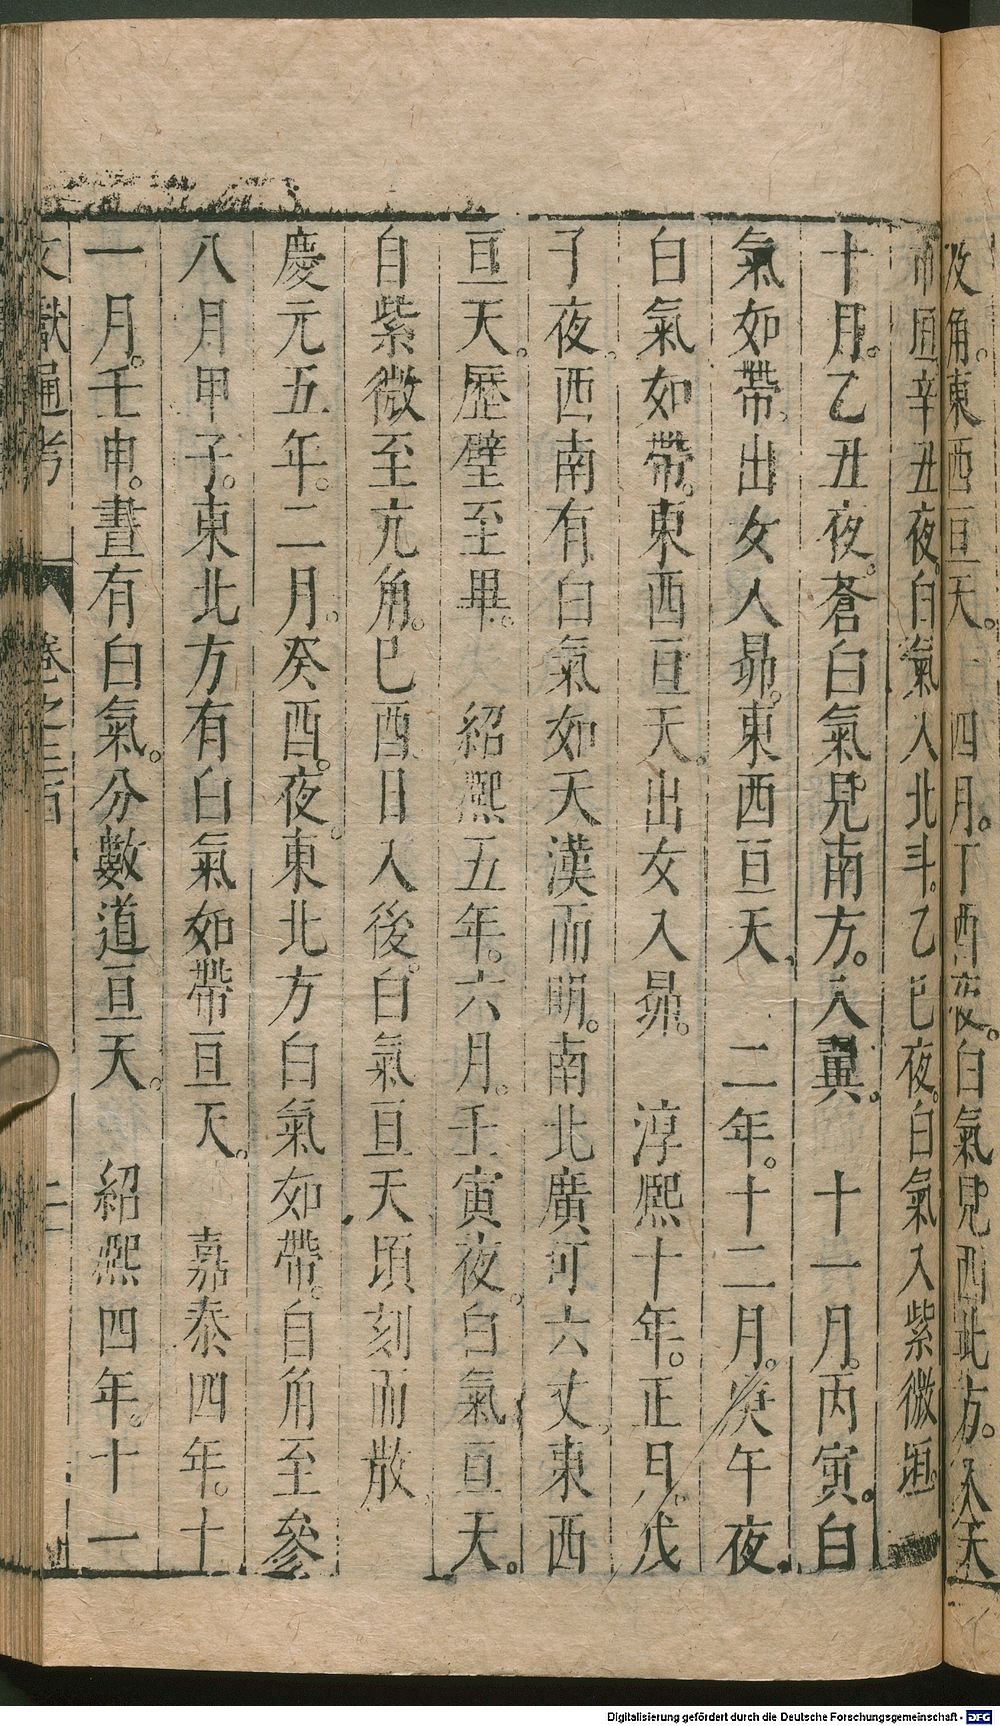 及角。東西亘天。　四月。丁酉夜。白氣見西北方。入天
市垣辛丑夜。白氣入北斗。乙巳夜。白氣入紫微垣。
十月。乙丑夜。蒼白氣見南方。入翼。　十一月。丙寅。白
氣如帶。出女入昴。東西亘天。　二年。十二月。庚午夜。
白氣如帶。東西亘天。出女入昴。　淳熙十年。正月。戊
子夜。西南有白氣如天漢而明。南北廣可六丈。東西
亘天。歷壁至畢。　紹熙五年。六月。壬寅夜。白氣亘天。
自紫微至亢角。己酉日入後。白氣亘天頃刻而散。
慶元五年。二月。癸酉。夜。東北方白氣如帶。自角至參
八月甲子。東北方有白氣如帶亘天。　嘉泰四年。十
一月。壬申。晝有白氣。分數道亘天。　紹熙四年。十一
文獻通考　卷之三百　二十
Digitalisierung gefördert durch die Deutsche Forschungsgemeinschaft - DFG